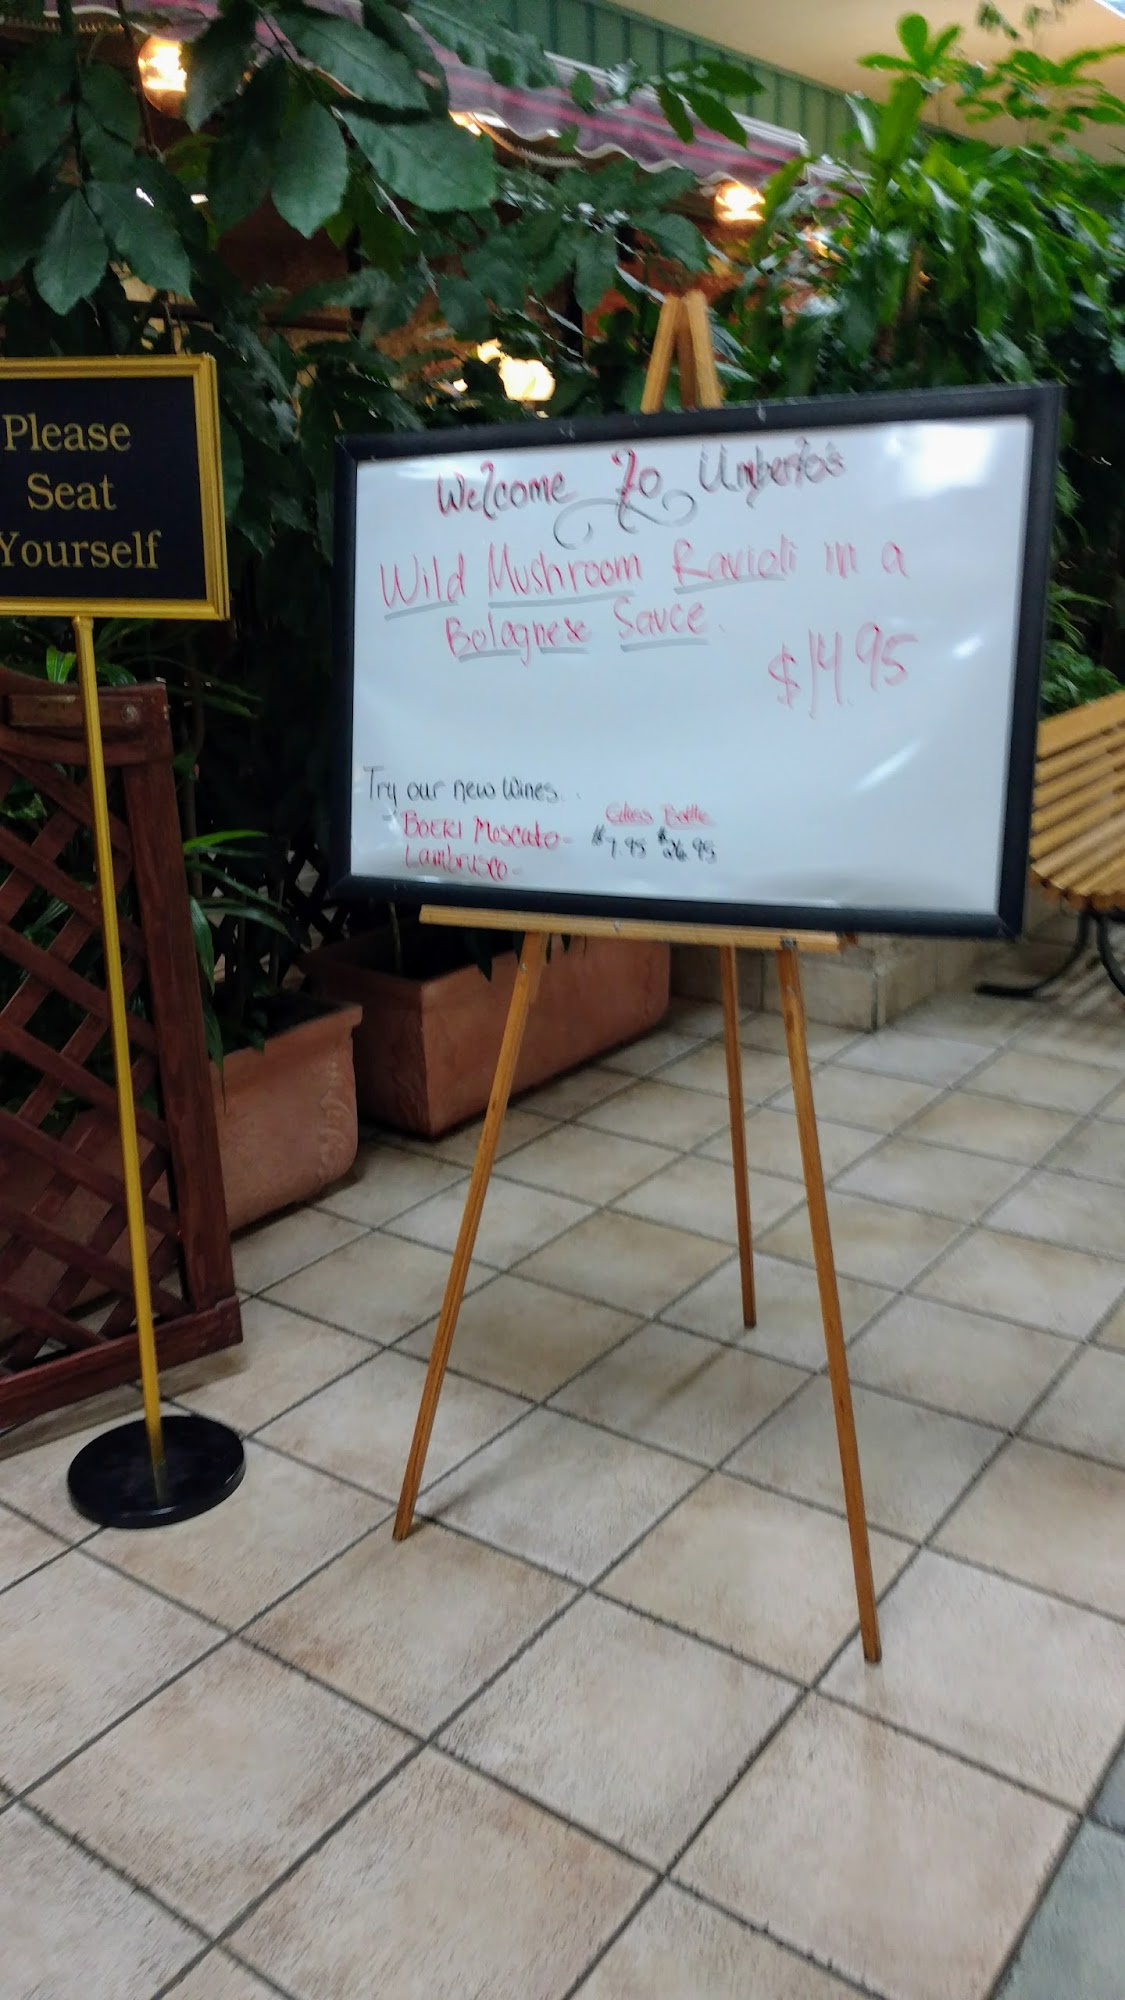 Please
Seat
Yourself
Welcome To Umberto's
Wild Mushroom Ravioli in a
Bolognese Sauce.
$14.95
Try our new Wines...
Glass Bottle
BOERI Moscato- $7.95 $26.95
Lambrusco-